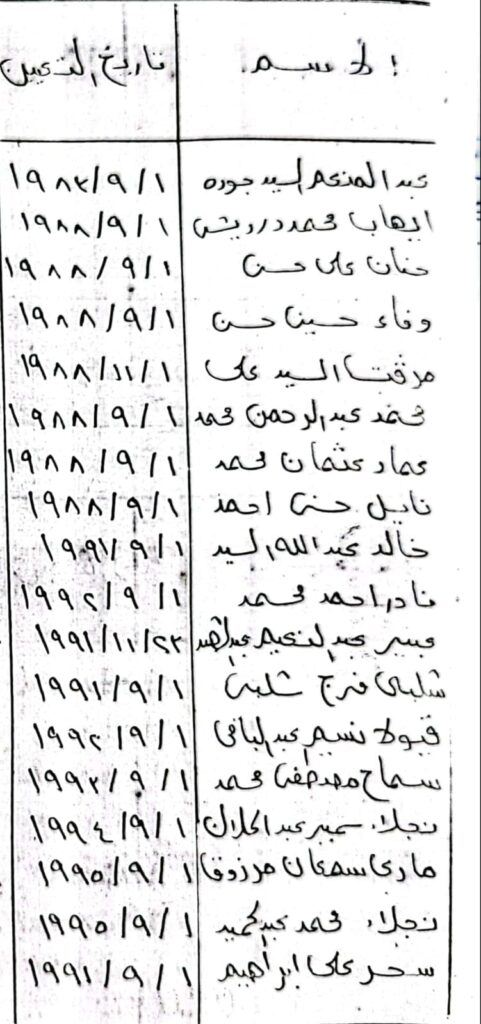 الاسم تاريخ التعيين
عبد المنعم السيد جوده ١٩٨٣/٩/١
ايهاب محمد درويش ١٩٨٨/٩/١
حنان على حسن ١٩٨٨/٩/١
وفاء حسين حسن ١٩٨٨/٩/١
مرفت السيد على ١٩٨٨/١١/١
محمد عبد الرحمن محمد ١٩٨٨/٩/١
عماد عثمان محمد ١٩٨٨/٩/١
نايل حسنى احمد ١٩٨٨/٩/١
خالد عبد الله السيد /٩/١
نادر احمد محمد ١٩٩٢/٩/١
عبير عبد النعيم ١٩٩١/١١/٢٣
شلبى فرج شلبى ١٩٩١/٩/١
نسيم عبد الباقى ١٩٩٢/٩/١
سماح مصطفى محمد ١٩٩٢/٩/١
نجلاء سمير ١٩٩٤/٩/١
مارى سمعان مرزوق ١٩٩٥/٩/١
نجلاء محمد عبد الحميد ١٩٩٥/٩/١
سحر على ابراهيم ١٩٩١/٩/١